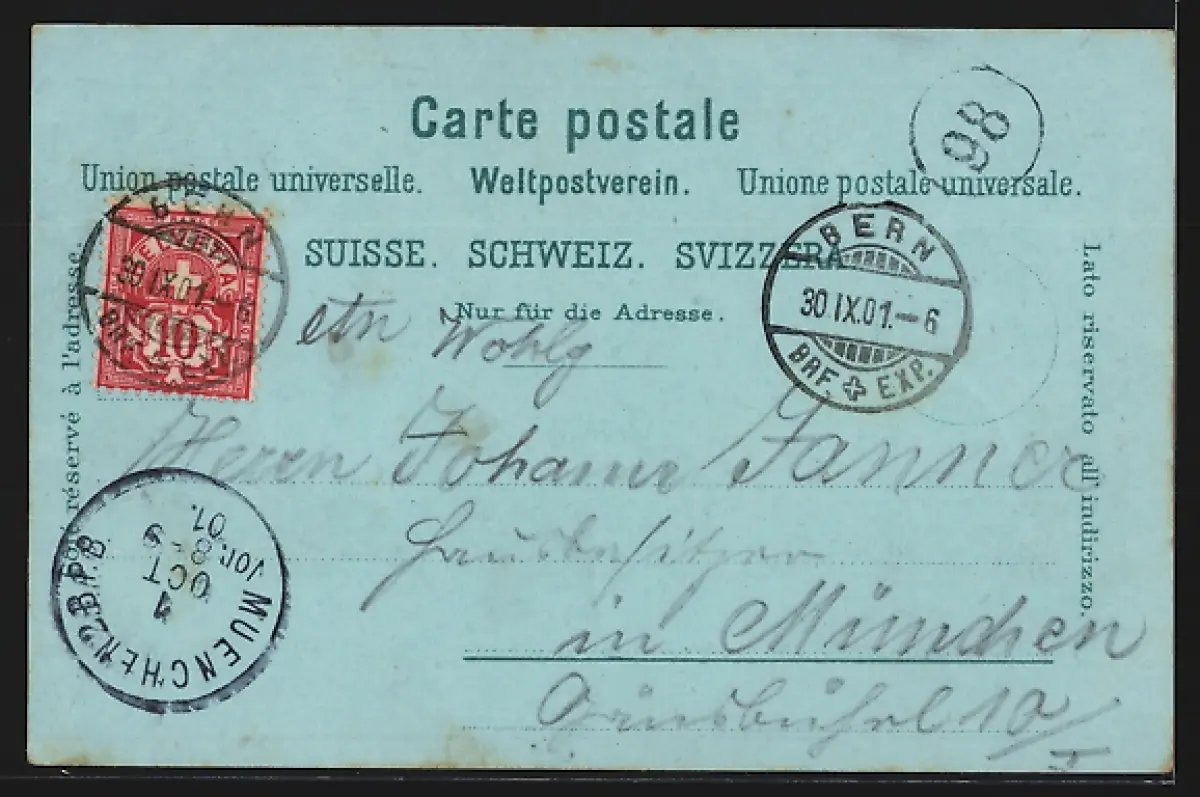 Carte postale
98
Union postale universelle. Weltpostverein. Unione postale universale.
SUISSE. SCHWEIZ. SVIZZERA
Nur für die Adresse.
Côté réservé à l'adresse.
Lato riservato all'indirizzo.
BERN
30.IX.01.–6
BRF. EXP.
HELVETIA
10
BERN
30.IX.01.–6
BRF. EXP.
Wohlg
Herrn Johann Fanner
Hausbesitzer
in München
10/I
MUENCHEN 2.B.P.
1
OCT
8-9
Vor. 01.